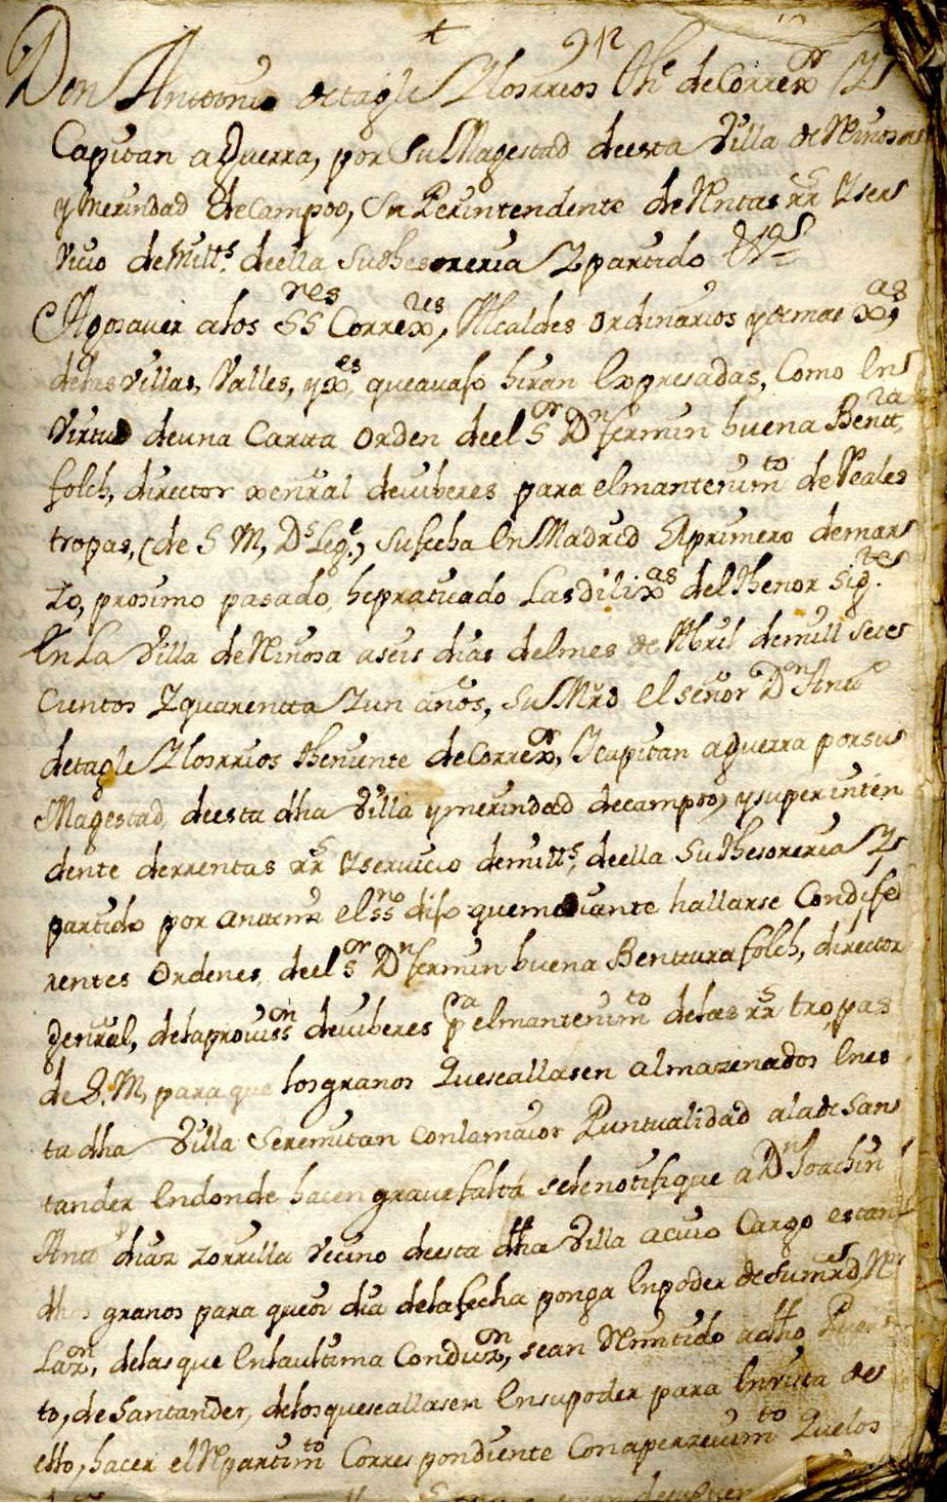 912
Don Anttonio de tagle Y losrrios the. de Correx.or Y
Capitan aGuerra, por Su Magestad deesta Villa de Reinosa
y merindad de Campoo, Superintendente de Rentas rr.s Y ser
vicio de mill.s deella Su thesoreria Y partido
Hago saver alos SS.res Correx.res, Alcaldes ordinarios y demas x.as
delas villas, Valles, y x.es queavajo hiran Expresadas, Como En
Virtud deuna Cartta orden deel S.or D.n fermin buena Bentt.ra
folch, director xenral deviberes para elmantenim.to de Reales
tropas, (de S M, D.s Leg.e) Sufecha EnMadrid Aprimero demar
zo, proximo pasado, hepraticado Lasdilix.as delthenor sig.tes
EnLa Villa deReinosa aseis dias delmes de Abril demill Sete
Cientos Yquarentta Yun años, Su Mrd El señor D.n Antt.o
detagle Ylosrrios theniente deCorrex.or, Ycapitan aGuerra porsu
Magestad, deesta dha Villa ymerindad decampoo, ysuperinten
dente derrentas rr.s Yservicio demill.s, deella Suthesoreria Y
partido por antemi elss.no dijo quemediante hallarse Condife
rentes Ordenes, deel S.or D.n fermin buena Benttura folch, director
Genral, delaproviss.on deviberes p.ra elmantenim.to delas rr.s tropas
de S.M, para que losgranos Quesehallasen almazenados Enes
ta dha Villa Seremitan conlamaior Puntualidad alade San
tander Endonde hacen grave falta selenotifique a D.n Joachin
Antt.o diaz zorrilla vecino deesta dha Villa acuio Cargo estan
dhos granos para queen dia delafecha ponga Enpoder desumrd, Re
laz.on, delas que Enlaultima Conduz.on, sean Remitido adho Puer
to, de Santander, delosquesehallasen Ensupoder para Envista de
ello, hacer elRepartim.to Correspondiente Conaperzevim.to Quelos